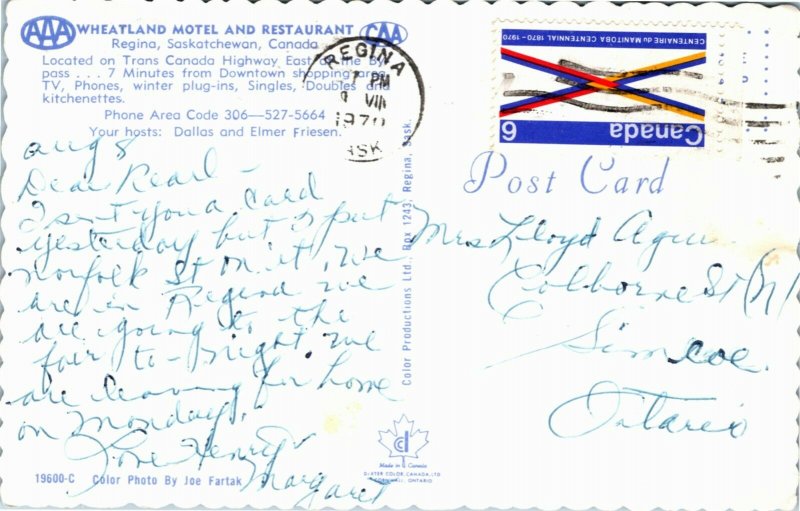 AAA WHEATLAND MOTEL AND RESTAURANT CAA
Regina, Saskatchewan, Canada
Located on Trans Canada Highway East on the By
pass . . . 7 Minutes from Downtown shopping area
TV, Phones, winter plug-ins, Singles, Doubles and
kitchenettes.
Phone Area Code 306—527-5664
Your hosts: Dallas and Elmer Friesen.
Aug 8
Dear Pearl –
I sent you a card
yesterday but I put
Norfolk St on it, we
are in Regina we
are going to the
fair to-night we
are leaving for home
on Monday.
Love Henry &
Margaret
19600-C Color Photo By Joe Fartak
Color Productions Ltd., Box 1243, Regina, Sask.
Made in Canada
DEXTER COLOR CANADA LTD
CORNWALL, ONTARIO
REGINA
PM
VIII
1970
SASK
CENTENAIRE du MANITOBA CENTENNIAL 1870-1970
6
Canada
Post Card
Mrs Lloyd
Colborne St (N)
Simcoe.
Ontario